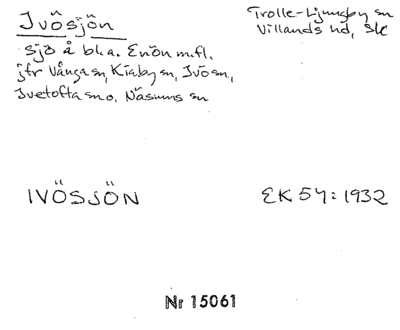 Ivösjön
Trolle-Ljungby sn
Villands hd, Sk
sjö å bl.a. Enön m.fl.
jfr Vånga sn, Kiaby sn, Ivö sn,
Ivetofta sn o. Näsums sn
IVÖSJÖN
EK 54:1932
Nr 15061